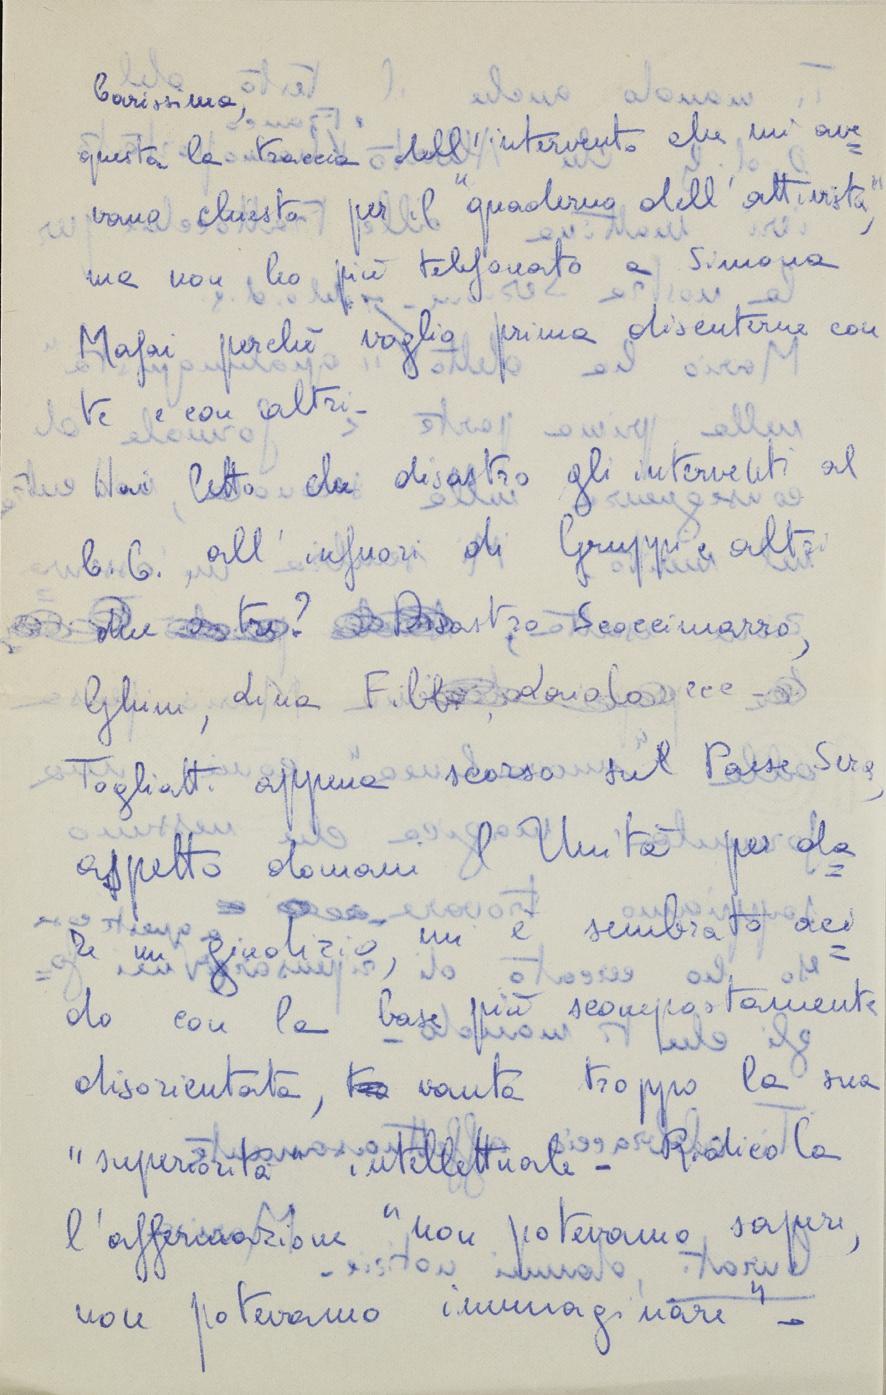 Carissima,
questa la traccia dell'intervento che mi ave=
vano chiesta per il "quaderno dell'attivista",
ma non ho più telefonato a Simona
Mafai perchè voglio prima discuterne con
te e con altri -
Hai letto che disastro gli interventi al
C.C. all'infuori di Gruppi e altri
due o tre? Disastro Scoccimarro,
Ghini, Lina Fibbi, Longo ecc -
Togliatti appena scorso sul Paese Sera,
aspetto domani l'Unità per da=
re un giudizio, mi è sembrato aci=
do con la base più scompostamente
disorientata, vanta troppo la sua
"superiorità" intellettuale - Ridicola
l'affermazione "non potevamo sapere,
non potevamo immaginare" -